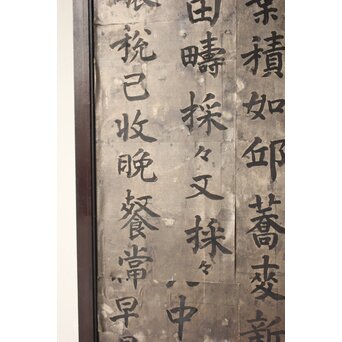 葉積如邱蕎麥新
田疇採々又採々八中
稅已收晚餐常早